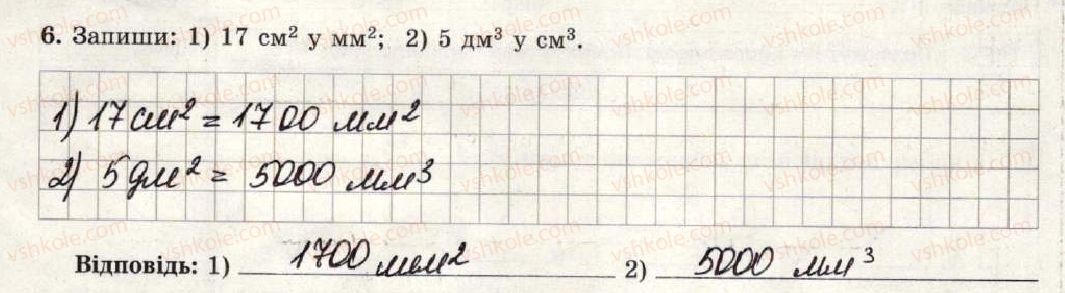 6. Запиши: 1) 17 см² у мм²; 2) 5 дм³ у см³.
1) 17 см² = 1700 мм²
2) 5 дм² = 5000 мм³
Відповідь: 1) 1700 мм² 2) 5000 мм³